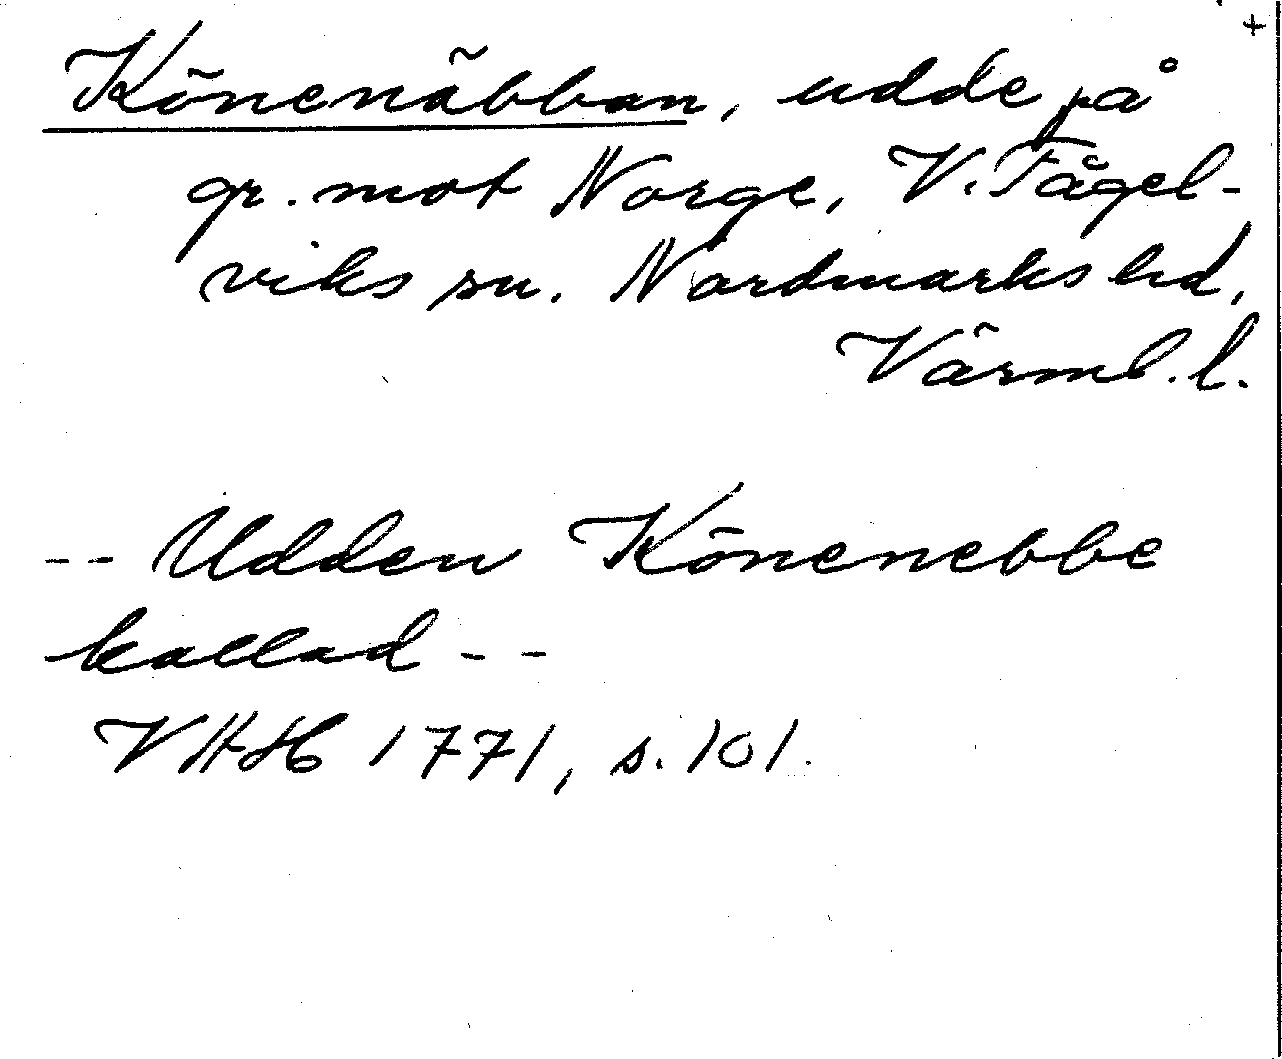 +
Könenäbban, udde på
gr. mot Norge, V. Fågel-
viks sn. Nordmarks hd,
Värml. l.
-- Udden Könenebbe
kallad --
VHH 1771, s. 101.